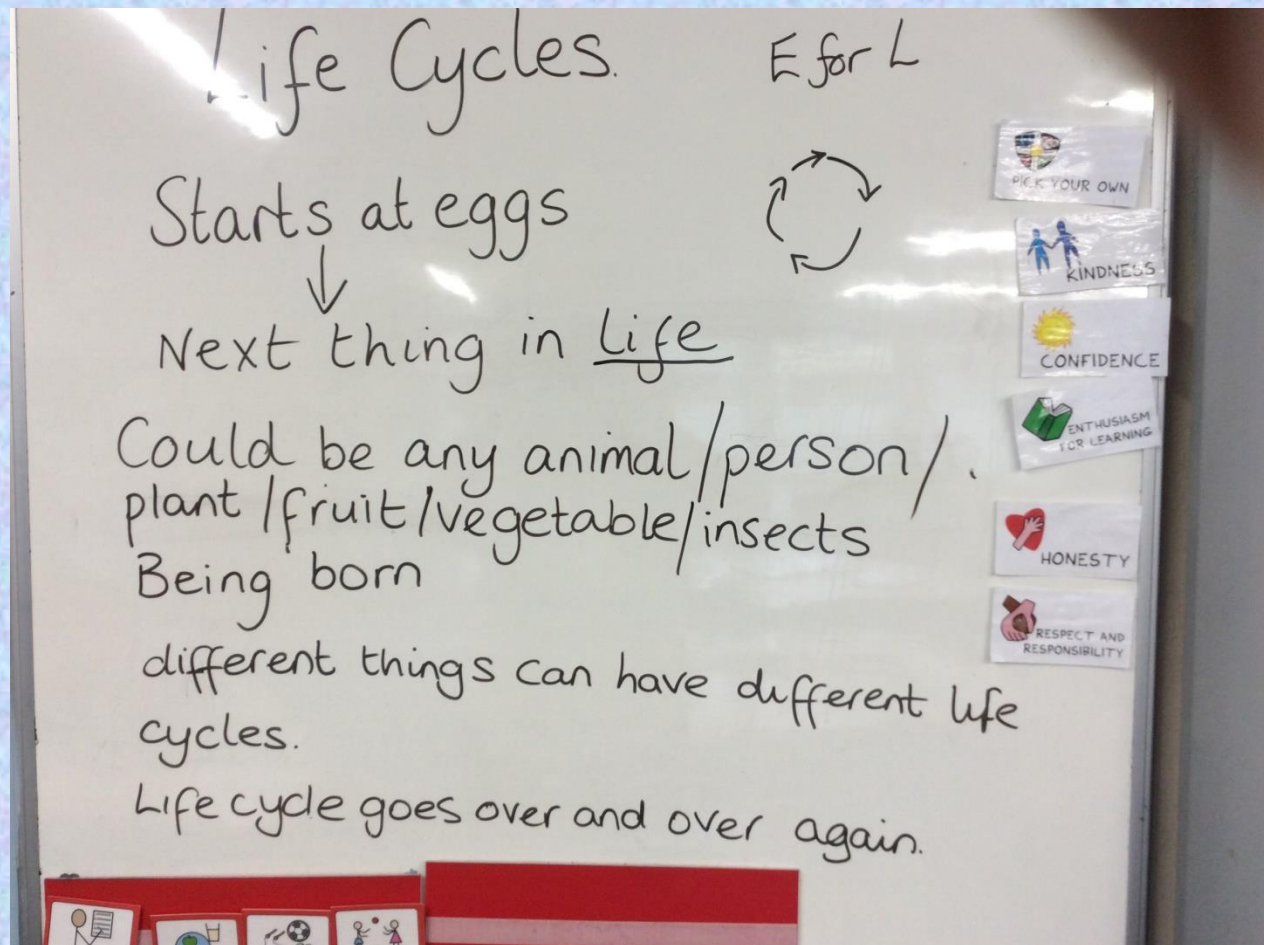 Life Cycles.
E for L
Starts at eggs
Next thing in life
Could be any animal/person/.
plant/fruit/vegetable/insects
Being born
different things can have different life
cycles.
Life cycle goes over and over again.
PICK YOUR OWN
KINDNESS
CONFIDENCE
ENTHUSIASM
FOR LEARNING
HONESTY
RESPECT AND
RESPONSIBILITY